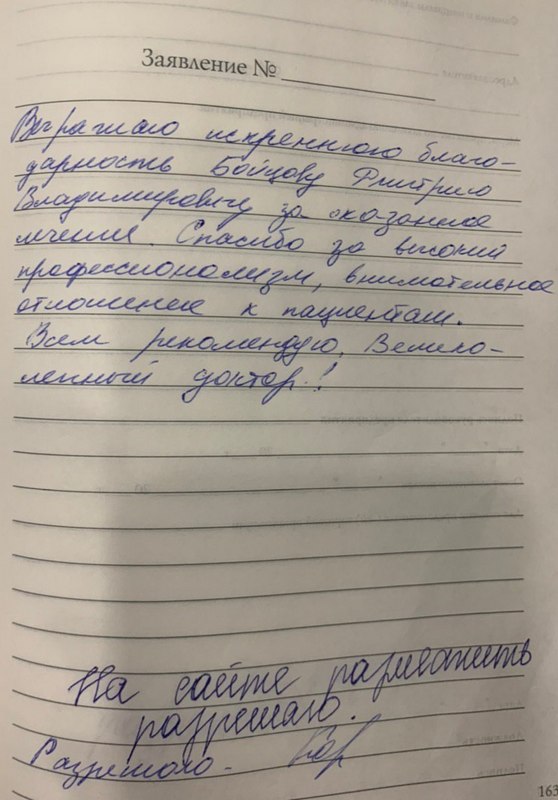 Заявление №
Выражаю искреннюю благо-
дарность Бойцову Дмитрию
Владимировичу за оказанное
лечение. Спасибо за высокий
профессионализм, внимательное
отношение к пациентам.
Всем рекомендую. Велико-
лепный доктор!
На сайте размещать
разрешаю.
Разрешаю -
163